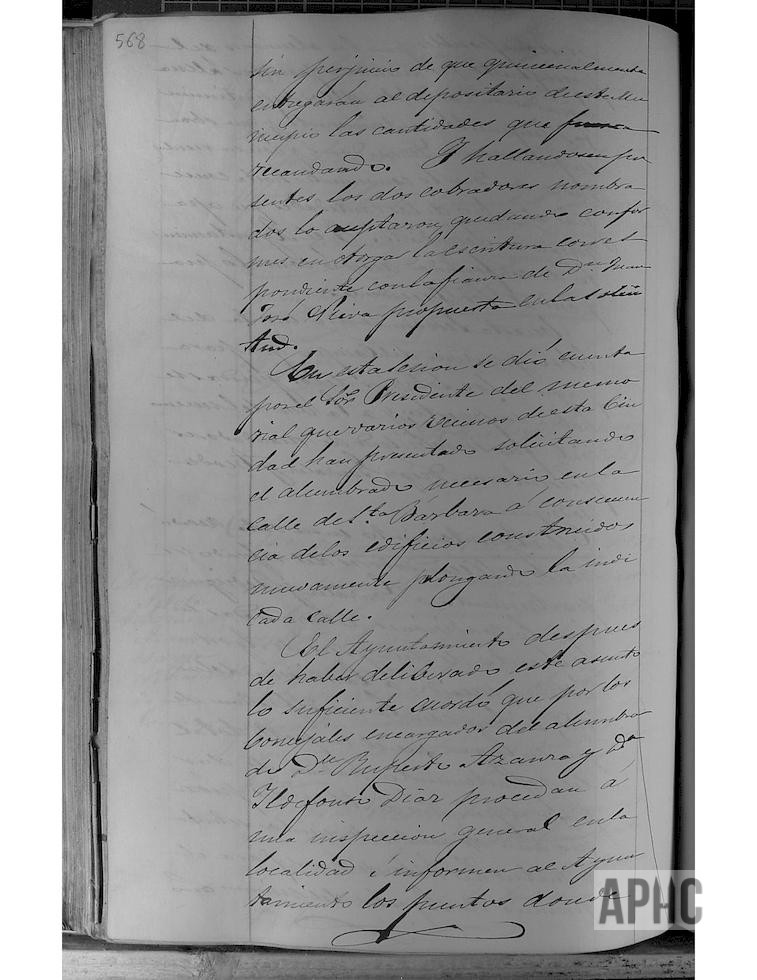 568
sin perjuicio de que quincenalmente
entregarán al depositario deeste Mu
nicipio las cantidades que
recaudando. Y hallandosen pre
sentes los dos cobradores nombra
dos lo aceptaron, quedando confor
mes en otorgar la escritura corres
pondiente con la fianza de Dn. Juan
José Leiva propuesta en la solici
tud.
En esta sesion se dió cuenta
por el Sor. Presidente del memo
rial que varios vecinos de esta Ciu
dad han presentado solicitando
el alumbrado necesario en la
calle de Sta. Bárbara á consecuen
cia delos edificios construidos
nuevamente plongando la indi
cada calle.
El Ayuntamiento despues
de haber deliberado este asunto
lo suficiente acordó que por los
Concejales encargados del alumbra
do Dn Ruperto Azanza y Dn
Ildefonso Diaz procedan a
una inspeccion general en la
localidad é informen al Ayun
tamiento los puntos donde
APHC